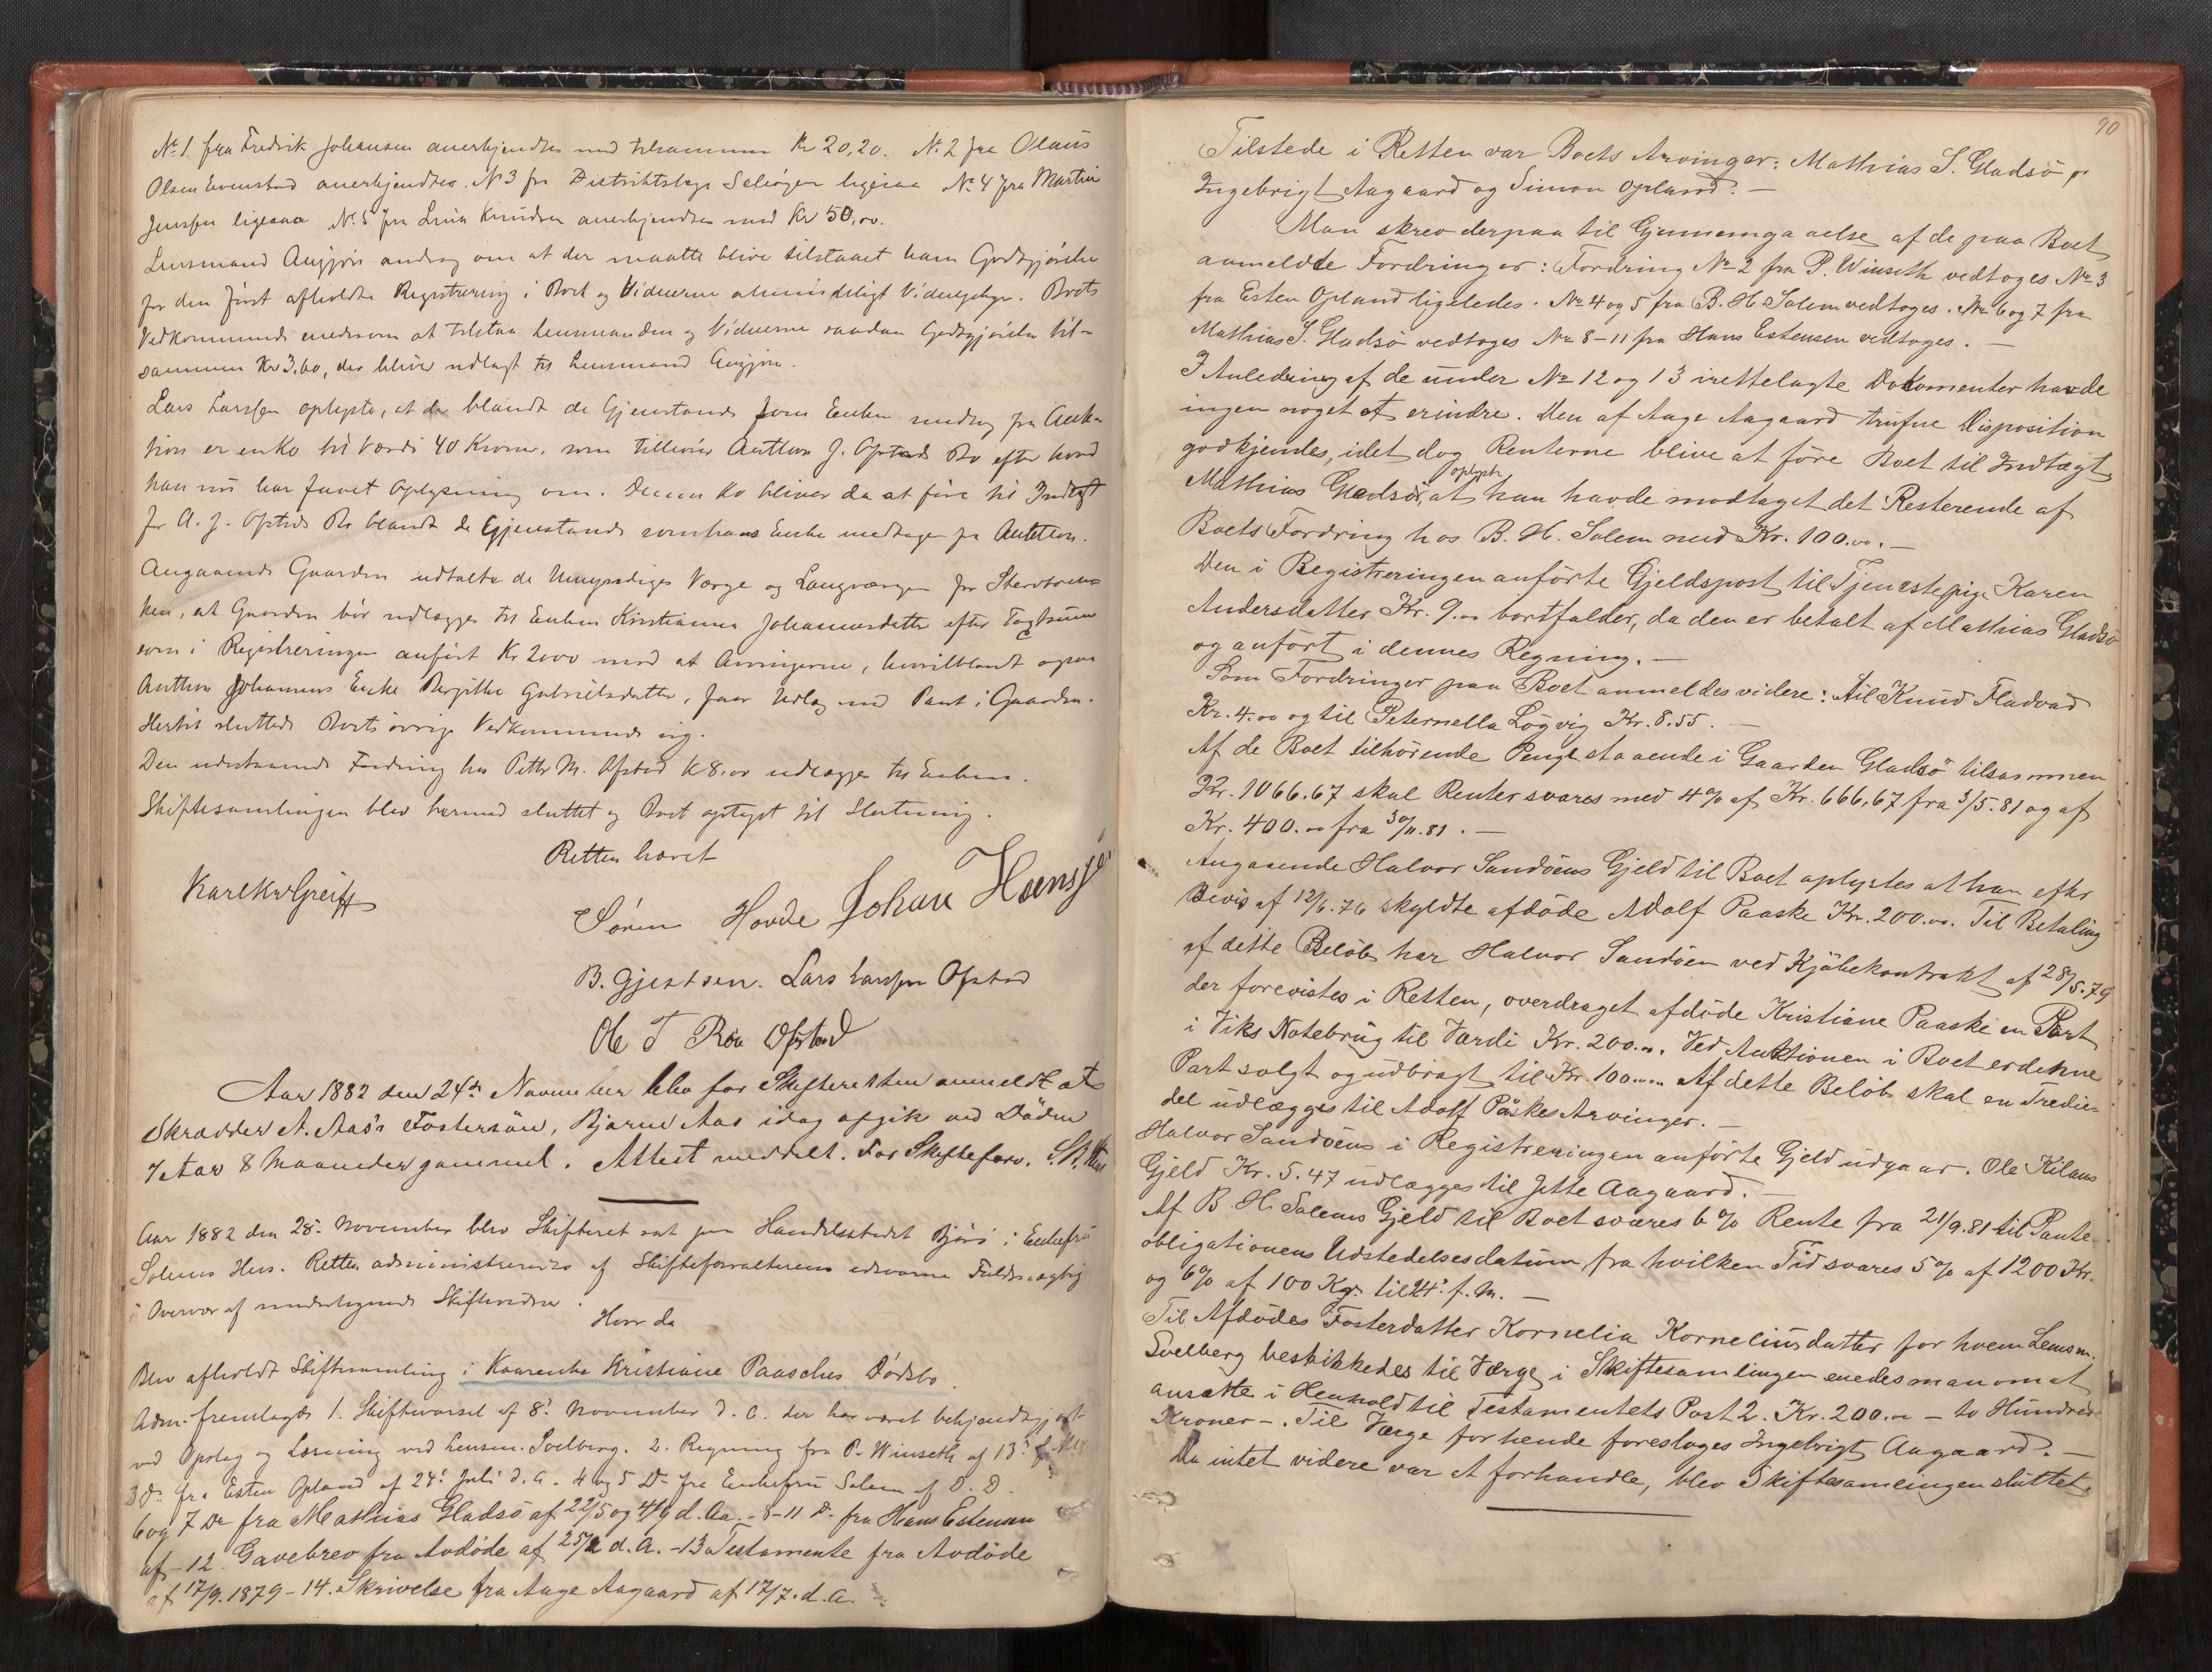 No 1 fra Fredrik Johansen anerkjendtes med tilsammen Kr 20,20. No 2 fra Olaus
Olsen Evenstad anerkjendtes. No 3 fra Distriktslæge Selsøyen ligesaa No 4 fra Martin
Jenssen ligesaa No 5 fra Knudsen anerkjendtes med Kr 50,00.
Lensmand androg om at der maatte blive tilstaaet ham Godtgjørelse
for den først afholdte Registrering i Boet og Vidnerne almindeligt Vidnegebyr. Boets
Vedkommende enedes om at tilstaa Lensmanden og Vidnerne saadan Godtgjørelse til-
sammen Kr 3,60, der bliver udlagt til Lensmand
Lars Larssen oplyste, at der blandt de Gjenstande som Enken undtog fra Auk-
tion er en Ko til Værdi 40 Kroner, som tilhører Anthon J. Opstads Bo efter hvad
han nu har faaet Oplysning om. Denne Ko bliver da at føre til Indtægt
for A. J. Opstads Bo blandt de Gjenstande som hans Enke undtager fra Auktion.
Angaaende Gaarden udtalte de Umyndiges Værge og Laugværgen for
at Gaarden bør udlægges til Enken Kristianna Johannesdatter efter Taxtsum
som i Registreringen anført Kr 2000 mod at Arvingerne, hvoriblandt ogsaa
Anthon Johannes Enke Bergitha Gabrielsdatter, faar Udlæg med Pant i Gaarden.
Hertil sluttede Boets øvrige Vedkommende sig.
Den udestaaende Fordring hos Petter M. Opstad K 8,00 udlægges til Enken.
Skiftesamlingen blev hermed sluttet og Boet optaget til Slutning.
Retten hævet
Karl Kr Greiff
Søren Hovde Johan Hansen
B. Gjertsen. Lars Larssen Opstad
Ole T Røe Opstad
Aar 1882 den 24de November blev for Skifteretten anmeldt at
Skrædder A. Aas's Fostersøn, Bjarne Aas idag afgik ved Døden
7 Aar 8 Maaneder gammel. Attest meddelt. For Skifteforv.
Aar 1882 den 28de November blev Skifteret sat paa Handelsstedet Bjørø i Enkefru
Solems Hus. Retten administreredes af Skifteforvalterens edsvorne Fuldmægtig
i Overvær af undertegnede Skiftevidner.
Hvor da
Blev afholdt Skiftesamling i Kaarenke Kristiane Paasches Dødsbo.
Adm. fremlagde 1. Skiftevarsel af 8de November d. A. der har været bekjendtgjort
ved Opslag og Læsning ved Lensm. Svelberg. 2. Regning fra P. Winseth af 13de
3 Do fra Esten Opland af 24de Juli d. A. 4 og 5 Do fra Enkefru Salem af D. D.
6 og 7 Do fra Mathias Gladsø af 22/5 og 4/6 d. Aa. - 8-11 Do fra Hans Estensen
af - 12. Gavebrev fra Avdøde af 25/2 d. A. - 13 Testamente fra Avdøde
af 17/9. 1879 - 14. Skrivelse fra Aage Aagaard af 17/7. d. A.
90
Tilstede i Retten var Boets Arvinger: Mathias S. Gladsø
Ingebrigt Aagaard og Simon Opland. —
Man skrev derpaa til Gjennemgaaelse af de paa Boet
anmeldte Fordringer: Fordring No 2 fra P. Winseth vedtoges No 3
fra Esten Opland ligeledes. No 4 og 5 fra B. H. Salem vedtoges. No 6 og 7 fra
Mathias S. Gladsø vedtoges No 8 - 11 fra Hans Estensen vedtoges. —
I Anledning af de under No 12 og 13 irettelagte Dokomenter havde
ingen noget at erindre. Den af Aage Aagaard trufne Disposition
godkjendes, idet dog Renterne blive at føre Boet til Indtægt
Mathias Gladsø oplyste, at han havde modtaget det Resterende af
Boets Fordring hos B. H. Salem med Kr. 100.00. —
Den i Registreringen anførte Gjeldspost til Tjenestepige Karen
Andersdatter Kr. 9.00 bortfalder, da den er betalt af Mathias Gladsø
og anført i dennes Regning. —
Som Fordringer paa Boet anmeldes videre: til Knud Fladvad
Kr. 4.00 og til Peternella Løgvig Kr. 8.55. —
Af de Boet tilhørende Penge staaende i Gaarden Gladsø tilsammen
Kr. 1066.67 skal Renter svares med 4% af Kr. 666,67 fra 3/5. 81 og af
Kr. 400.00 fra 30/11. 81. —
Angaaende Halvor Sandøens Gjeld til Boet oplystes at han efter
Bevis af 12/6. 76 skyldte afdøde Adolf Paaske Kr. 200.00. Til Betaling
af dette Beløb har Halvor Sandøen ved Kjøbekontrakt af 28/5. 79
der forevistes i Retten, overdraget afdøde Kristiane Paaske en Part
i Viks Notebrug til Værdi Kr. 200.00. Ved Auktionen i Boet er denne
Part solgt og udbragt til Kr. 100.00. Af dette Beløb skal en Tredie-
del udlægges til Adolf Påskes Arvinger. —
Halvor Sandøens i Registreringen anførte Gjeld udgaar. Ole Kilens
Gjeld Kr. 5.47 udlægges til Jette Aagaard. —
Af B. H. Salems Gjeld til Boet svares 6% Rente fra 21/9. 81 til Pante-
obligationens Udstedelsesdatum, fra hvilken Tid svares 5% af 1200 Kr.
og 6% af 100 Kr. til 24de f. M. —
Til Afdødes Fosterdatter Kornelia Korneliusdatter for hvem Lensm.
Svelberg beskikkedes til Værge i Skiftesamlingen enedes man om at
ansætte i Henhold til Testamentets Post 2. Kr. 200.00 - to Hundrede
Kroner -. Til Værge for hende foresloges Ingebrigt Aagaard. —
Da intet videre var at forhandle, blev Skiftesamlingen sluttet.